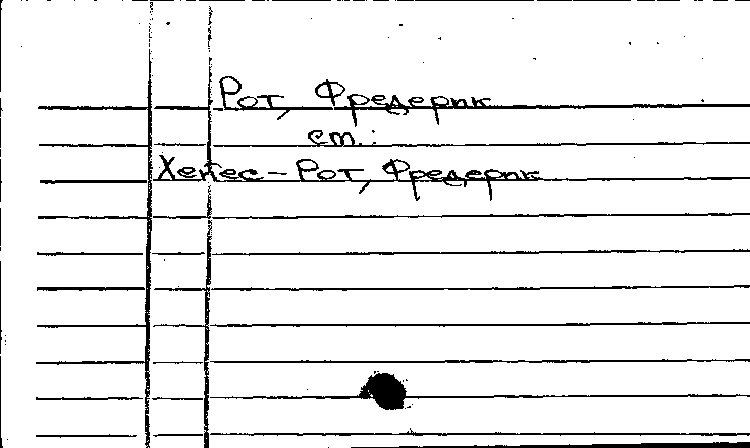 Рот, Фредерик
см.:
Хейес-Рот, Фредерик